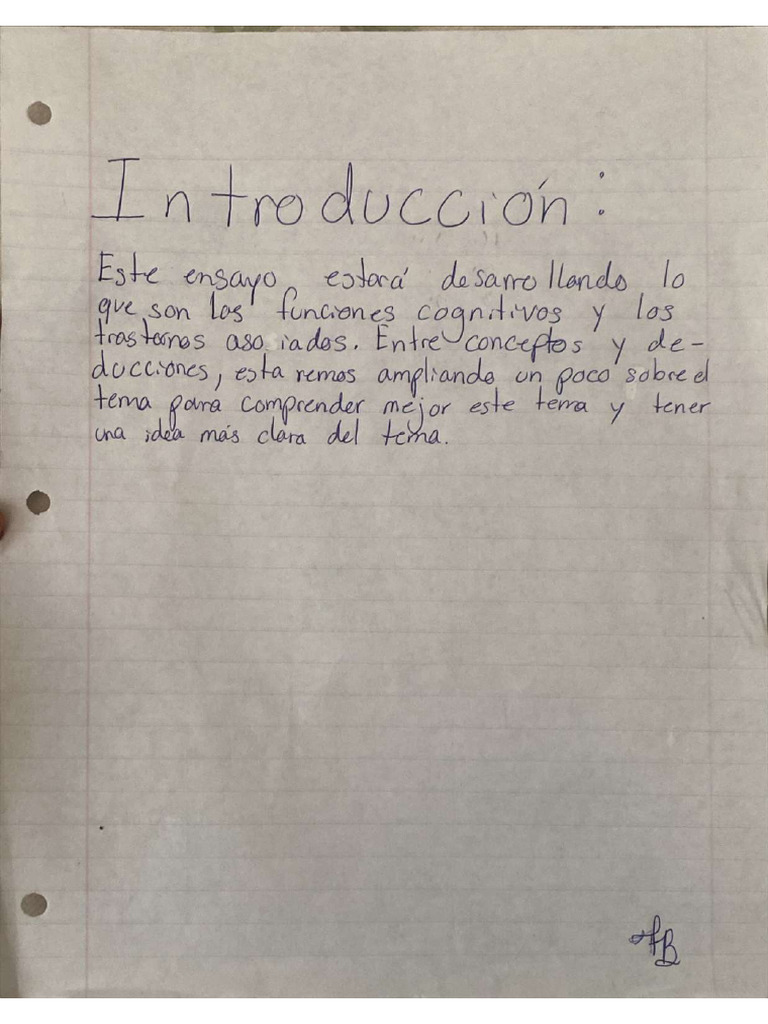 Introducción:
Este ensayo, estará desarrollando lo
que son las funciones cognitivas y los
trastornos asociados. Entre conceptos y de-
ducciones, estaremos ampliando un poco sobre el
tema para comprender mejor este tema y tener
una idea más clara del tema.
AB